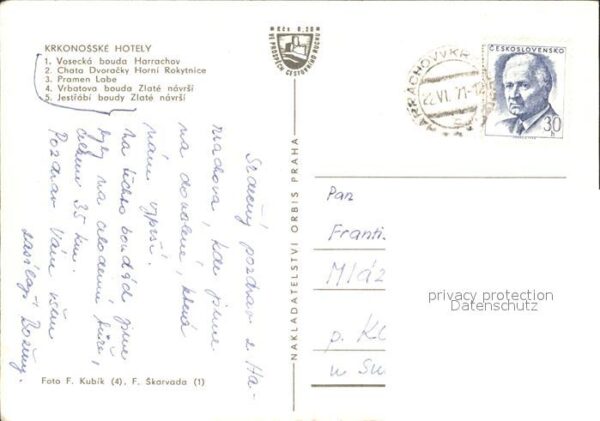 KRKONOŠSKÉ HOTELY
1. Vosecká bouda Harrachov
2. Chata Dvoračky Horní Rokytnice
3. Pramen Labe
4. Vrbatova bouda Zlaté návrší
5. Jestřábí boudy Zlaté návrší
Kčs 0,20
VE PROSPĚCH CESTOVNÍHO RUCHU
HARRACHOV V KRK
22.VI.71-12
ČESKOSLOVENSKO
30
h
Srdečný pozdrav z Ha-
rrachova, kde jsme
na dovolené, která
nám vyprší.
Na těchto boudách jsme
byli na celodenní túře,
celkem 35 km.
Pozdrav Vám všem
zasílají Boženy.
Foto F. Kubík (4), F. Škarvada (1)
NAKLADATELSTVÍ ORBIS PRAHA
Pan
Franti
Mláz
p. Kl
u Su
privacy protection
Datenschutz